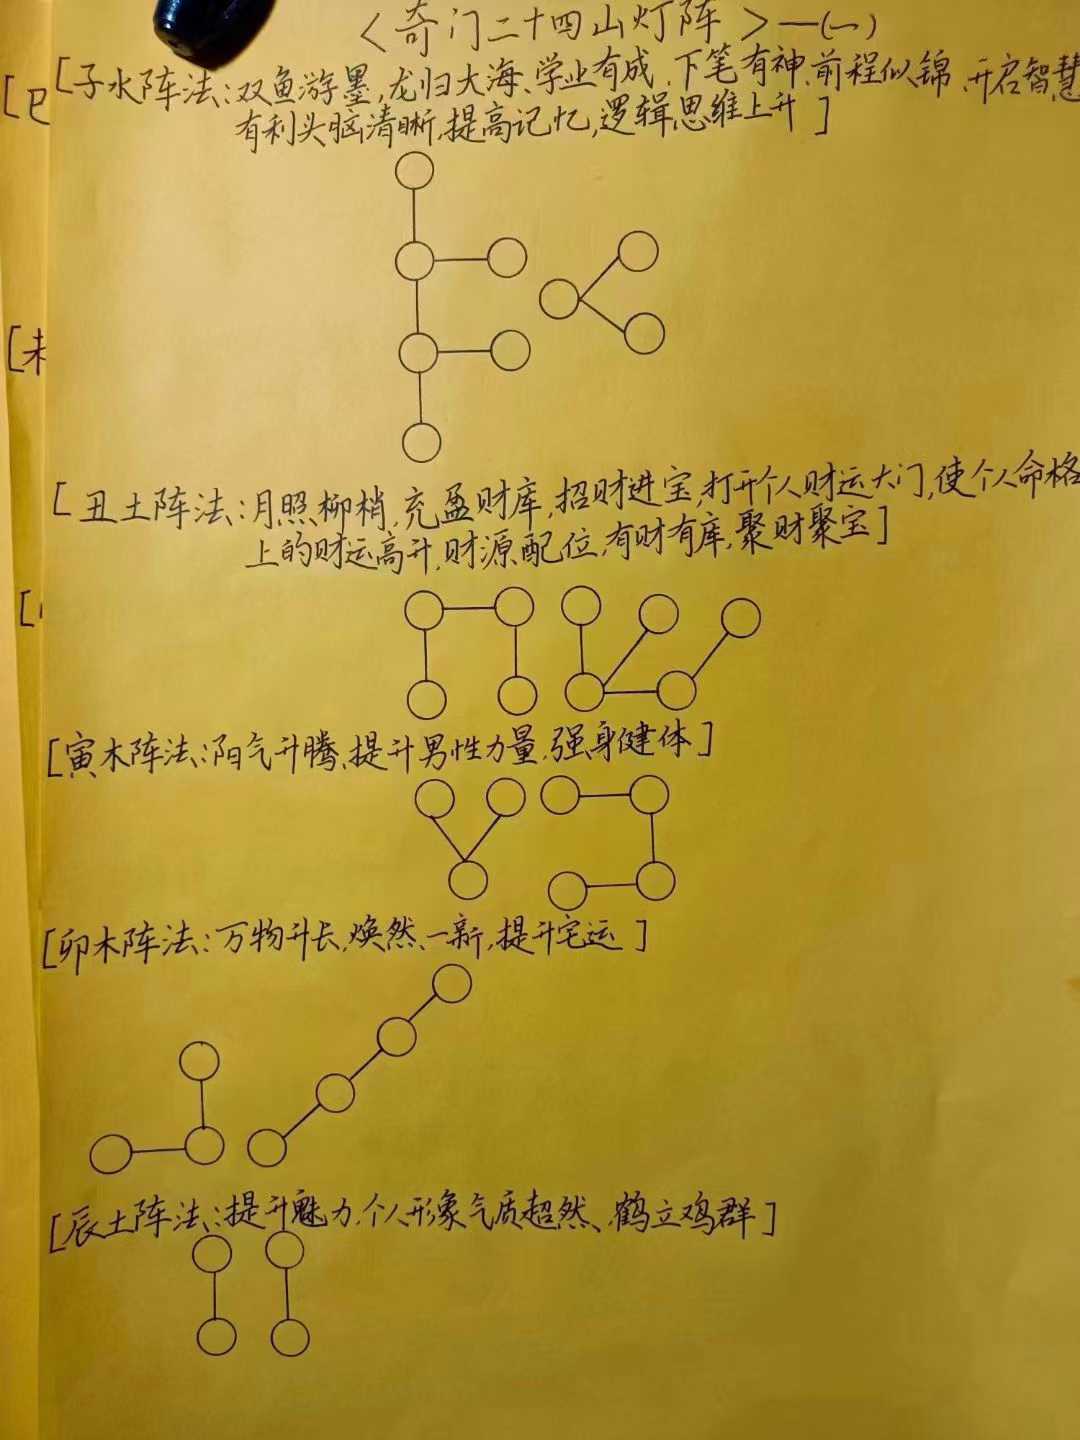 <奇门二十四山灯阵>一(一)
[子水阵法:双鱼游墨,龙归大海、学业有成,下笔有神、前程似锦、开启智慧
有利头脑清晰,提高记忆,逻辑思维上升]
[丑土阵法:月照柳梢,充盈财库,招财进宝,打开个人财运大门,使个人命格
上的财运高升,财源配位,有财有库,聚财聚宝]
[寅木阵法:阳气升腾、提升男性力量,强身健体]
[卯木阵法:万物升长,焕然一新,提升宅运]
[辰土阵法:提升魅力,个人形象气质超然、鹤立鸡群]
[巳
[未